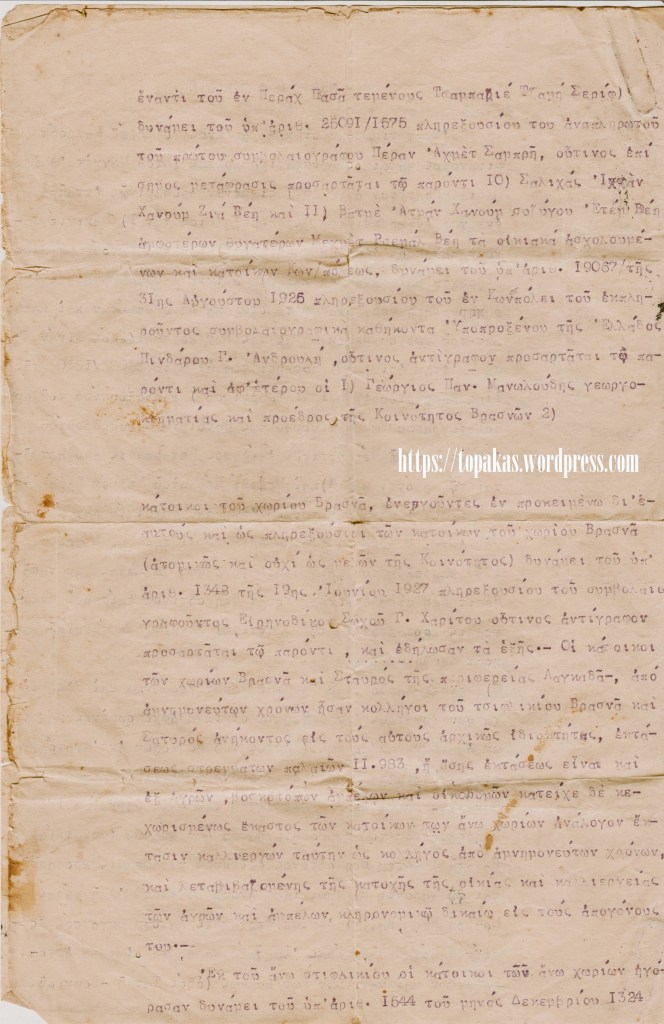 ἔναντι τοῦ ἐν Περάχ Πασᾶ τεμένους Τσαμπασιέ Τζαμῆ Σερίφ)
δυνάμει τοῦ ὑπ'ἀριθ. 25091/1575 πληρεξουσίου του ἀναπληρωτοῦ
τοῦ πρώτου συμβολαιογράφου Πέραν Ἀχμέτ Σαμπρῆ, οὗτινος ἐπί
σημος μετάφρασις προσαρτᾶται τῷ παρόντι 10) Σαλιχάς
Χανούμ Ζιᾶ Βέη καί 11) Φατμέ Χανούμ συζύγου Βέη
ἀμφοτέρων θυγατέρων Βέη τά οἰκιακά ἀσχολουμέ-
νων καί κατοίκων Κων/πόλεως, δυνάμει τοῦ ὑπ'ἀριθ. 19087/τῆς
31ης Αὐγούστου 1926 πληρεξουσίου τοῦ ἐν Κωνπόλει τοῦ ἐκπλη-
ροῦντος συμβολαιογραφικά καθήκοντα Ὑποπροξένου τῆς Ἑλλάδος
Πινδάρου Γ. Ἀνδρουλῆ ,οὗτινος ἀντίγραφον προσαρτᾶται τῷ πα-
ρόντι καί ἀφ'ἑτέρου οἱ 1) Γεώργιος Παν. Μανωλούδης γεωργο-
κτηματίας καί πρόεδρος τῆς Κοινότητος Βρασνῶν 2)
https://topakas.wordpress.com
κάτοικοι τοῦ χωρίου Βρασνᾶ, ἐνεργοῦντες ἐν προκειμένῳ δι'ἑ-
αυτούς καί ὡς πληρεξούσιοι τῶν κατοίκων τοῦ χωρίου Βρασνᾶ
(ἀτομικῶς καί οὐχί ὡς μελῶν τῆς Κοινότητος) δυνάμει τοῦ ὑπ'
ἀριθ. 1348 τῆς 19ης Ἰουνίου 1927 πληρεξουσίου τοῦ συμβολαιο
γραφοῦντος Εἰρηνοδίκου Σωχοῦ Γ. Χαρίτου οὗτινος ἀντίγραφον
προσαρτᾶται τῷ παρόντι , καί ἐδήλωσαν τά ἑξῆς.- Οἱ κάτοικοι
τῶν χωρίων Βρασνᾶ καί Σταυρός τῆς περιφερείας Λαγκαδᾶ-, ἀπό
ἀμνημονεύτων χρόνων ἦσαν κολλήγοι τοῦ τσιφλικίου Βρασνᾶ καί
Σατυρός ἀνήκοντος εἰς τούς αὐτούς ἀρχικῶς ἰδιοκτήτας, ἐκτά-
σεως στρεμμάτων παλαιῶν 11.983, ἡ ὅσης ἐκτάσεως εἶναι καί
ἐξ ἀγρῶν ,βοσκοτόπων ἀμπέλων καί οἰκοδομῶν κατεῖχε δέ κε-
χωρισμένως ἕκαστος τῶν κατοίκων των ἄνω χωρίων ἀνάλογον ἔκ-
τασιν καλλιεργῶν ταύτην ὡς κολλῆγος ἀπό ἀμνημονεύτων χρόνων,
καί μεταβιβαζομένης τῆς κατοχῆς τῆς οἰκίας καί καλλιεργείας
τῶν ἀγρῶν καί ἀμπέλων κληρονομικῷ δικαίῳ εἰς τούς ἀπογόνους
του.-
Ἐκ τοῦ ἄνω τσιφλικίου οἱ κάτοικοι τῶν ἄνω χωρίων ἠγό-
ρασαν δυνάμει τοῦ ὑπ'ἀριθ. 1544 τοῦ μηνός Δεκεμβρίου 1324